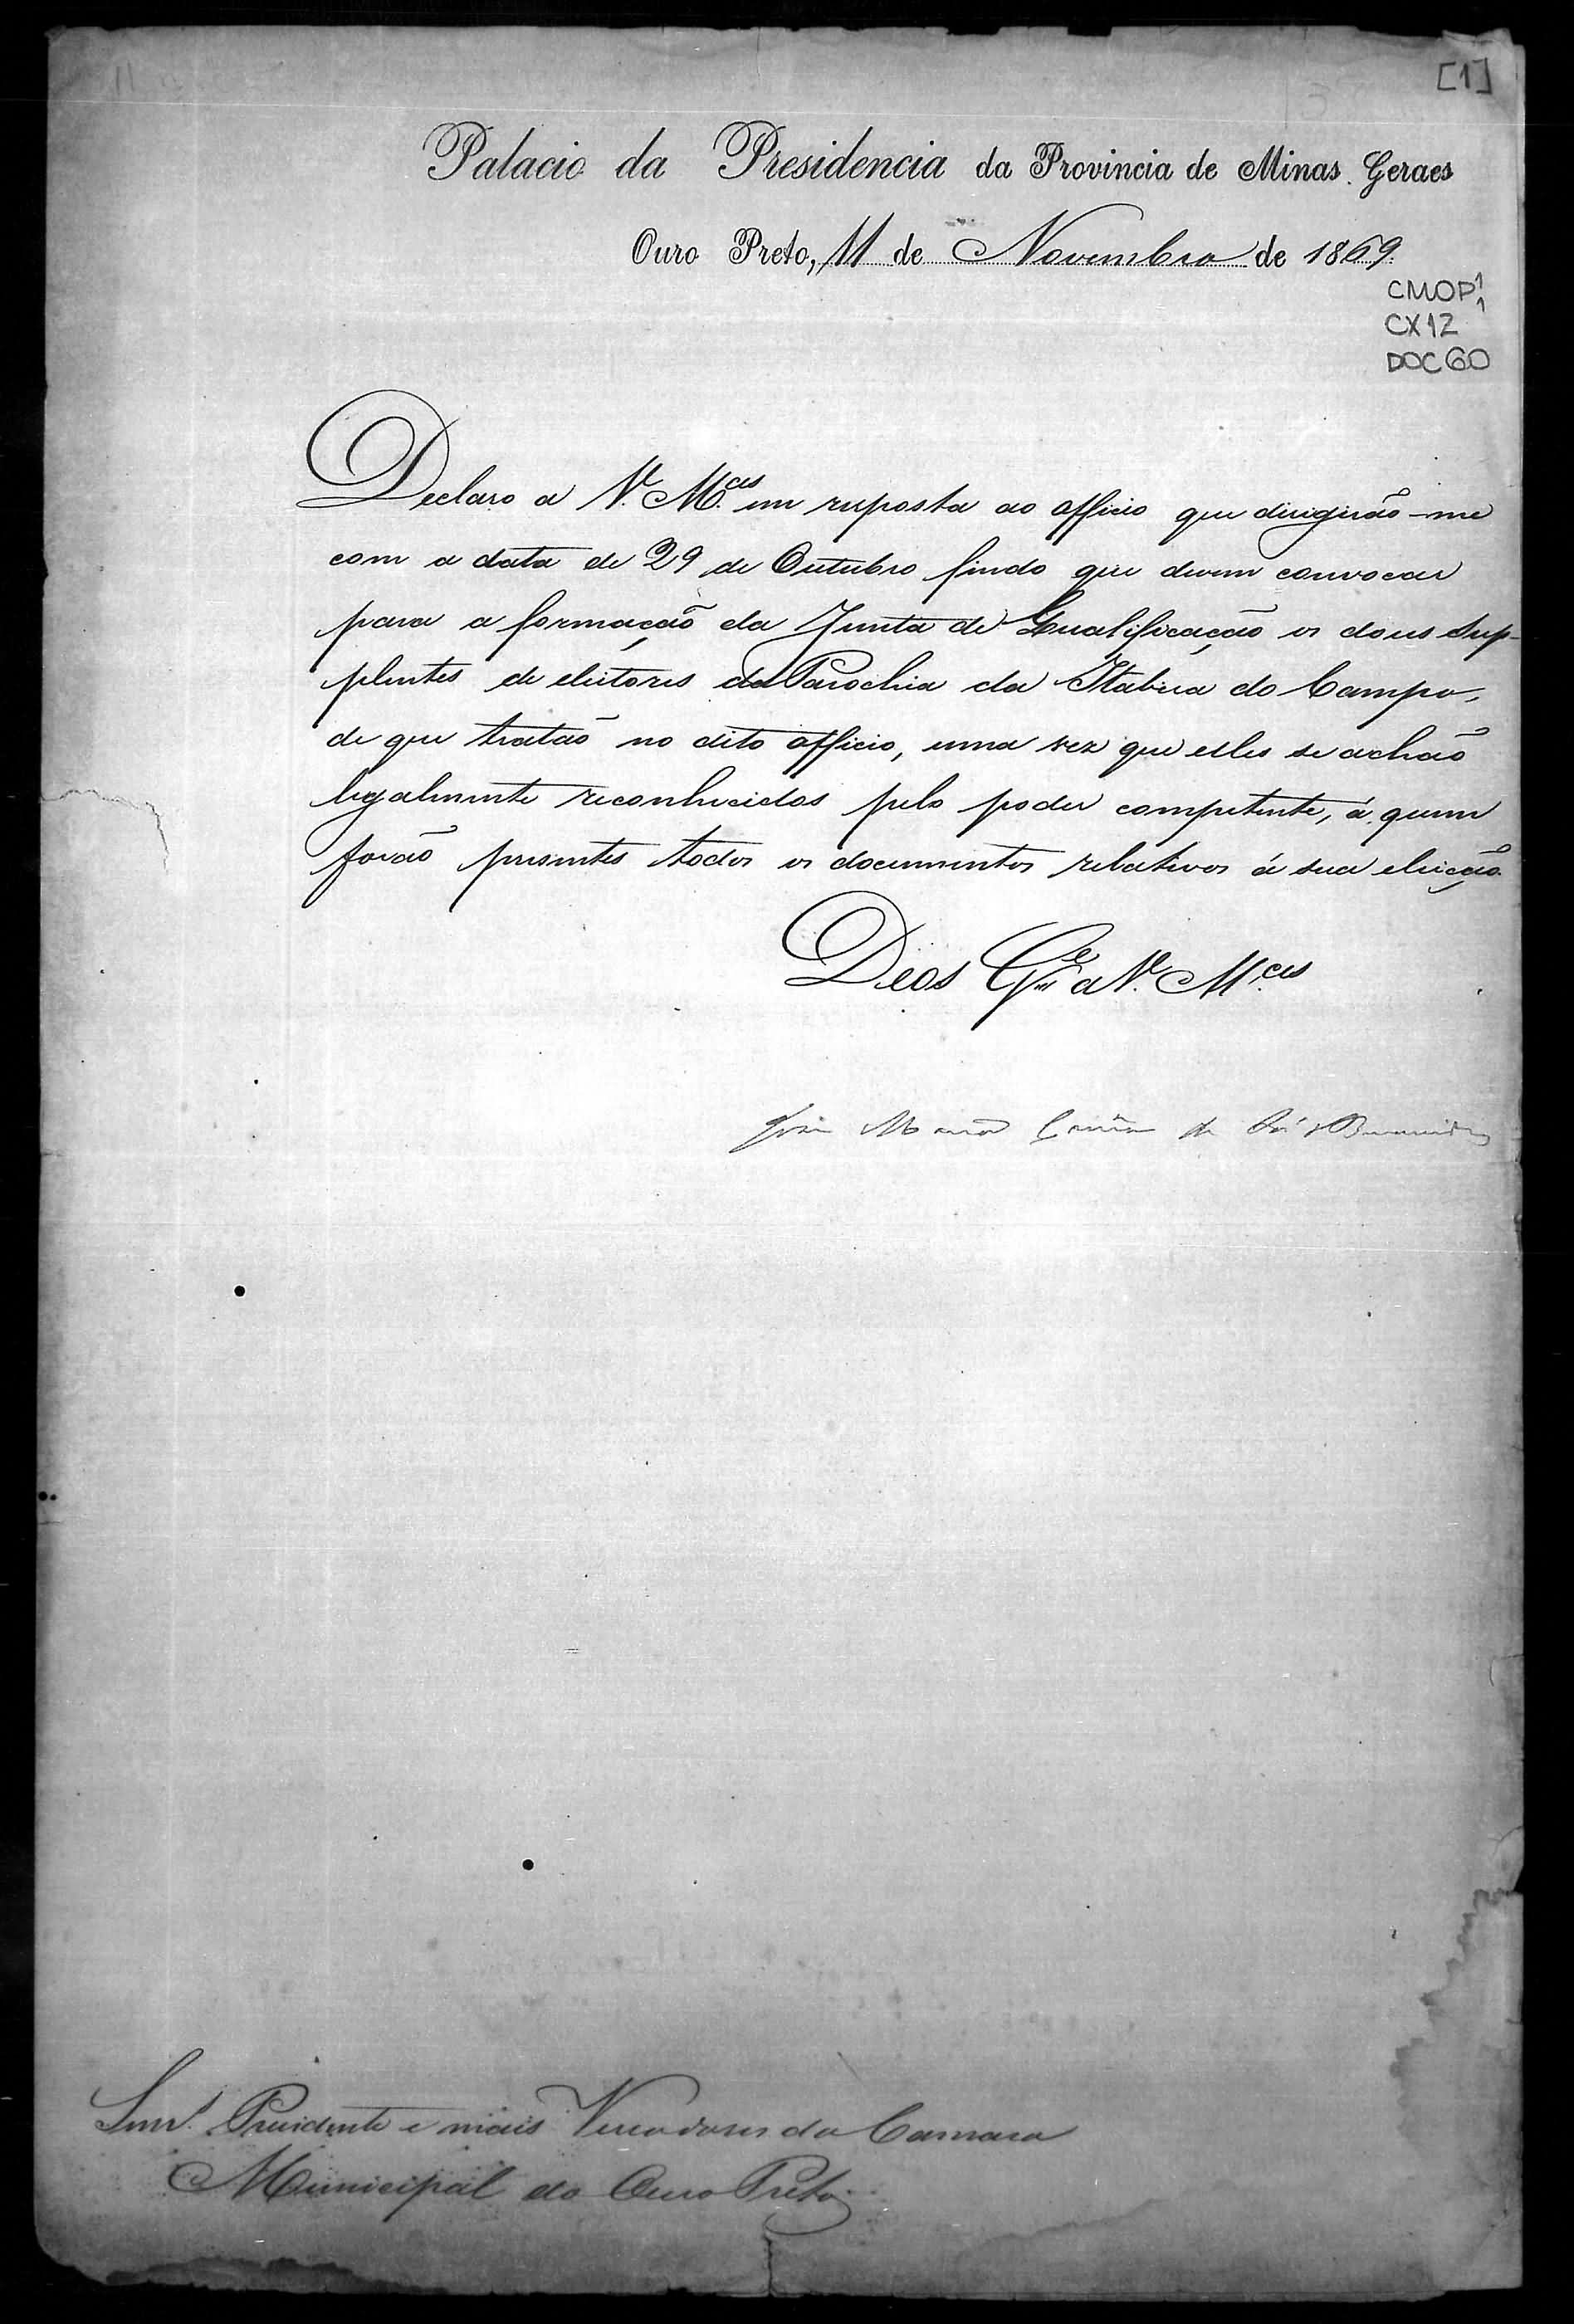 [1]
Palacio da Presidencia da Provincia de Minas Geraes
Ouro Preto, 11 de Novembro de 1869.
CMOP 1/1
CX12
DOC 60
Declaro a V. M.ces em resposta ao officio que dirigirão-me
com a data de 29 de Outubro findo que devem convocar
para a formação da Junta de Qualificação os dous sup-
plentes de eleitores da Parochia da Itabira do Campo,
de que tratão no dito officio, uma vez que elles se achão
legalmente reconhecidos pelo poder competente, á quem
forão presentes todos os documentos relativos á sua eleição.
Deos G.e a V. M.ces
José Maria Corrêa de Sá e Benevides
Snr.s Presidente e mais Vereadores da Camara
Municipal do Ouro Preto.